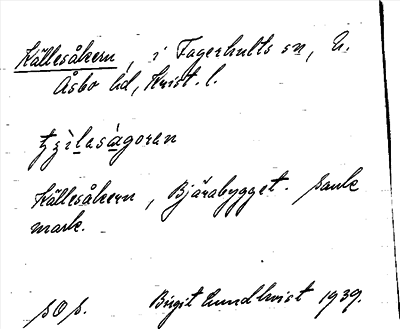 Källesåkern, i Fagerhults sn, N.
Åsbo hd, Krist. l.
Källesåkern, Bjärabygget. Sank
mark.
Birgit Lundkvist 1939.